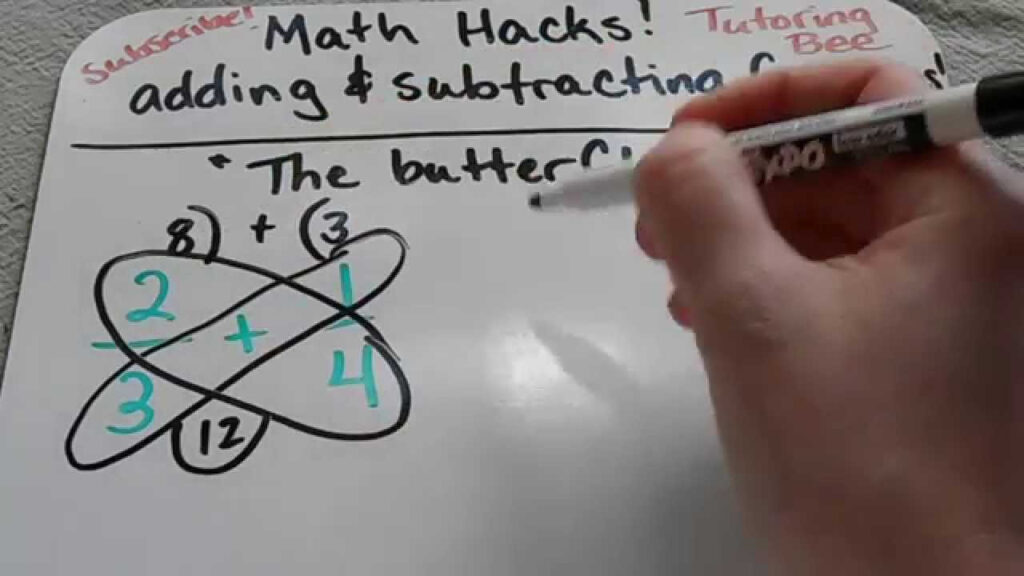 Subscribe!
Math Hacks!
Tutoring
Bee
adding & subtracting
* The butterfly
8) + (3
2 + 1
3 4
12
EXPO